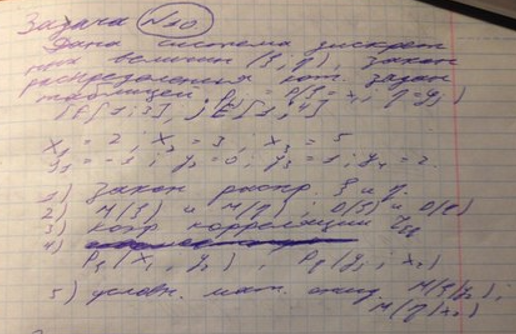 Задача №10
Дана система дискрет
ных величин (ξ, η), закон
распределения кот. задан
таблицей P = P(ξ = xᵢ; η = yⱼ)
i∈[1;3], j∈[1;4]
x₁ = 2; x₂ = 3; x₃ = 5
y₁ = -1; y₂ = 0; y₃ = 1; y₄ = 2.
1) Закон распр. ξ и η.
2) M(ξ) и M(η); D(ξ) и D(η)
3) коэф корреляции
4)
Pξ(x₁, y₂), Pη(y₃; x₂)
5) условн. мат. ожид. M(ξ|y₂);
M(η|x₂)